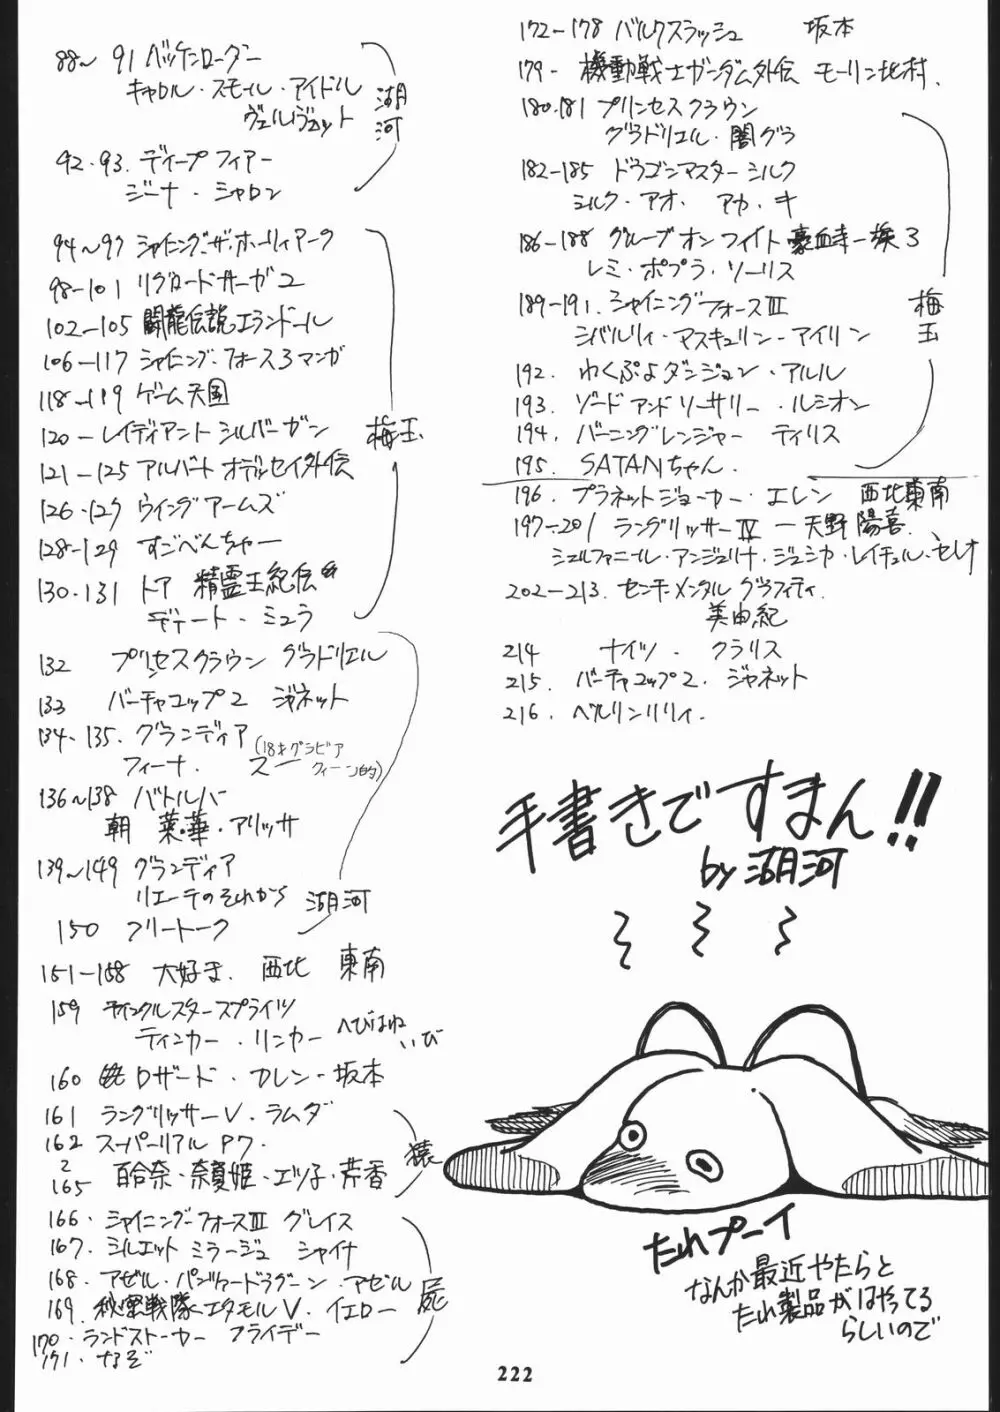 88〜91 バッケンローダー
キャロル・スモール・アイドル
ヴェルヴェット
湖河
92・93. ディープフィアー
ジーナ・シャロン
94〜97 シャイニング・ザ・ホーリィアーク
98-101 リグロードサーガ2
102-105 闘龍伝説エランドール
106-117 シャイニング・フォース3マンガ
118-119 ゲーム天国
120-レイディアントシルバーガン
梅玉
121-125 アルバートオデッセイ外伝
126・127 ウイングアームズ
128-129 すごべんちゃー
130・131 トア 精霊王紀伝
ディート・ミュラ
132 プリンセスクラウン グラドリエル
133 バーチャコップ2 ジャネット
134・135. グランディア
フィーナ. スー (18才グラビアクィーン的)
136〜138 バトルバ
朝 菜・華・アリッサ
139〜149 グランディア
リエーテのそれから 湖河
150 フリートーク
151-158 大好き. 西北 東南
159 ティンクルスタースプライツ
ティンカー・リンカー へびはねいび
160 銃ロザード・カレン-坂本
161 ラングリッサーV・ラムダ
162 スーパーリアルP7.
2
165 百合奈・奈真姫・エツ子・芹香
猿
166・シャイニングフォースⅢ グレイス
167. シルエットミラージュ シャイナ
168・アゼル・パンツァードラグーン・アゼル
屍
169. 秘密戦隊メタモルV・イエロー
170・ランドストーカー フライデー
171・なぞ
172-178 バルクスラッシュ 坂本
179- 機動戦士ガンダム外伝 モーリン北村.
180.181 プリンセスクラウン
グラドリエル・闇グラ
182-185 ドラゴンマスターシルク
シルク・アオ. アカ・キ
186-188 グルーブオンファイト 豪血寺一族3
レミ・ポプラ・ソーリス
189-191. シャイニングフォースⅢ
シバルリィ・マスキュリン-アイリン
梅玉
192. わくぷよダンジョン・アルル
193. ソードアンドソーサリー・ルシオン
194. バーニングレンジャー ティリス
195. SATANちゃん.
196. プラネットジョーカー・エレン 西北東南
197-201 ラングリッサーⅣ-天野陽喜.
シェルファニール・アンジェリナ・ジェシカ・レイチェル・セレナ
202-213. センチメンタルグラフィティ.
美由紀
214 ナイツ. クラリス
215. バーチャコップ2. ジャネット
216. ベルリンリリィ.
手書きですまん!!
by 湖河
たれプーイ
なんか最近やたらと
たれ製品がはやってる
らしいので
222